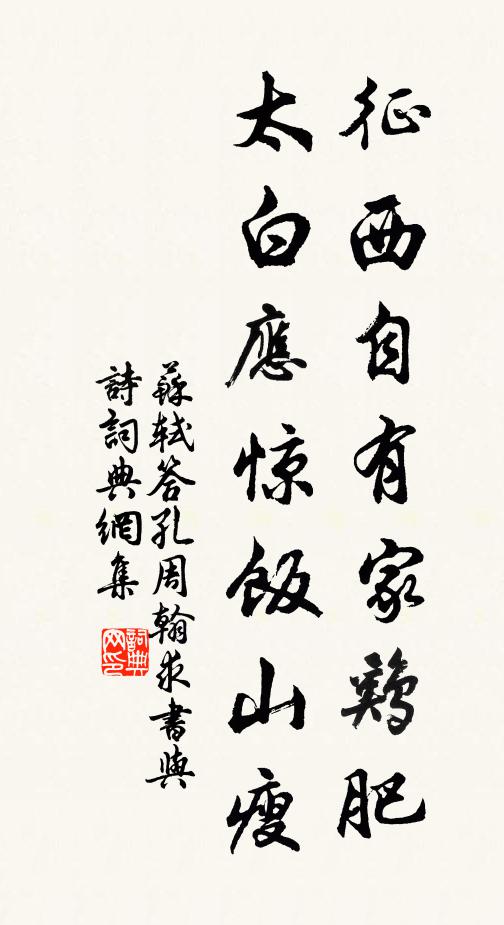 征西自有家鷄肥
太白應惊飯山瘦
蘇軾答孔周翰求書與
詩詞典網集
詞典网印